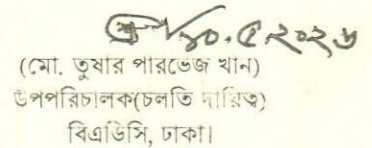 ১০.৫.২০২৬
(মো. তুষার পারভেজ খান)
উপপরিচালক(চলতি দায়িত্ব)
বিএডিসি, ঢাকা।